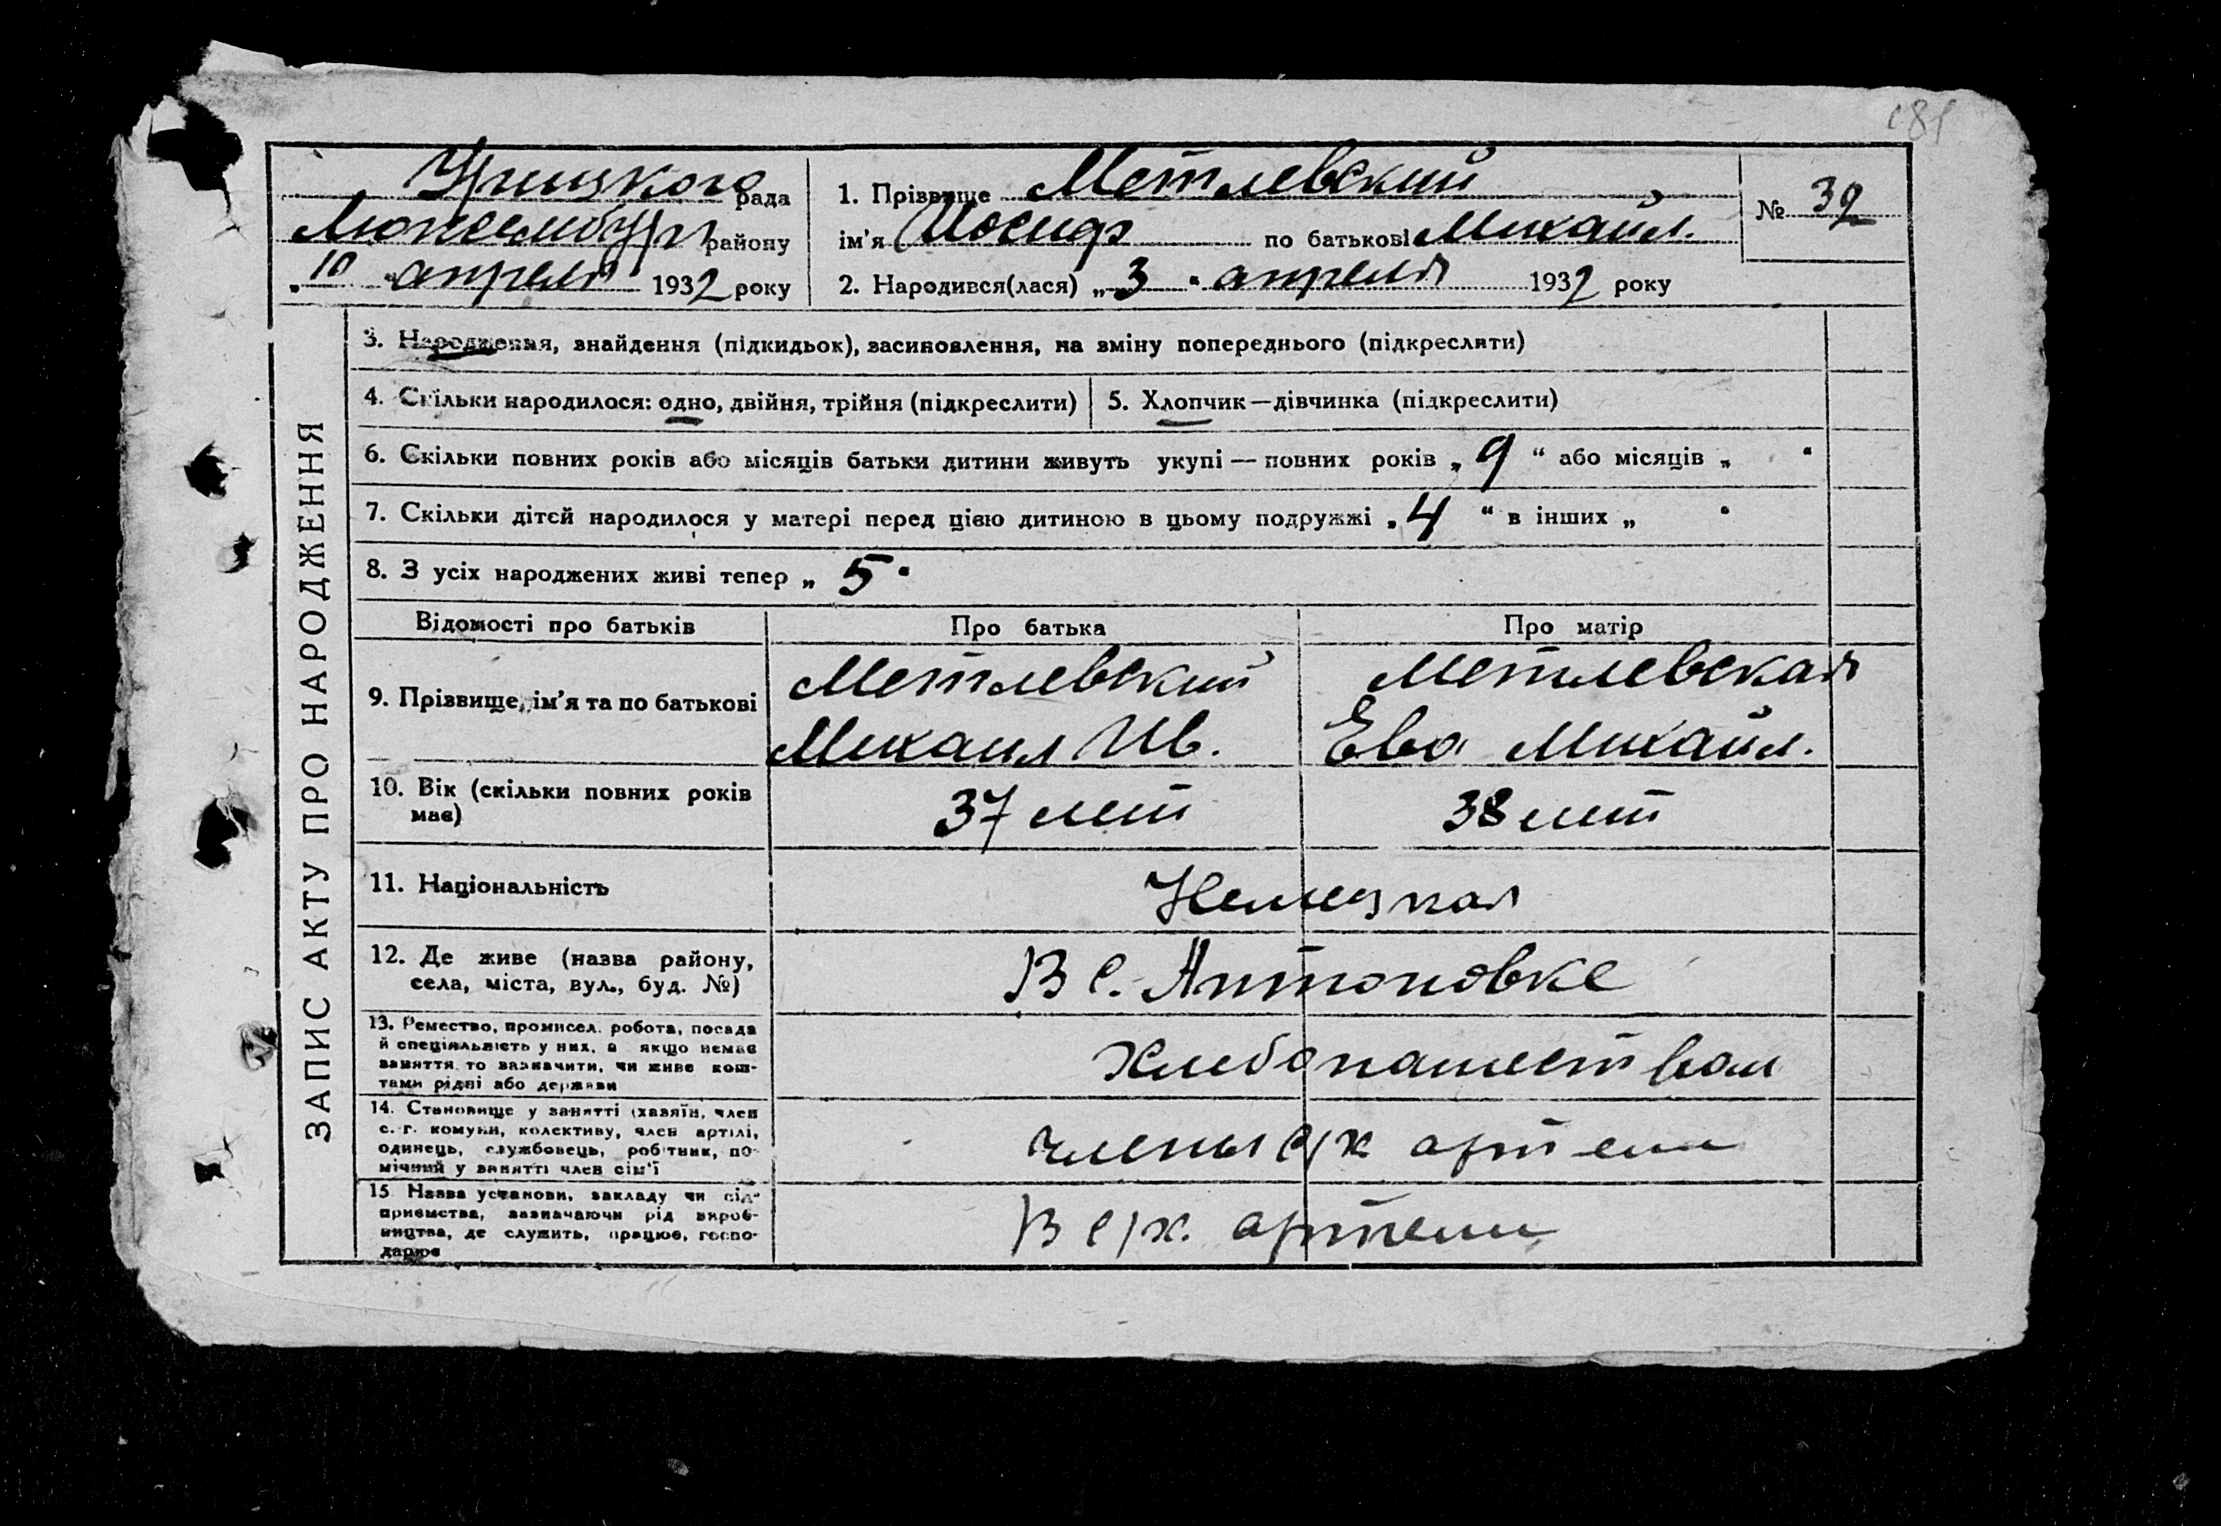 181
Урицкого рада
Люксембург району
„10“ апреля 1932 року
1. Прізвище Метлевский
ім'я Иосиф по батькові Михайл.
2. Народився(лася) „3“ апреля 1932 року
№ 32
ЗАПИС АКТУ ПРО НАРОДЖЕННЯ
3. Народження, знайдення (підкидьок), засиновлення, на зміну попереднього (підкреслити)
4. Скільки народилося: одно, двійня, трійня (підкреслити)
5. Хлопчик—дівчинка (підкреслити)
6. Скільки повних років або місяців батьки дитини живуть укупі — повних років „9“ або місяців „ “
7. Скільки дітей народилося у матері перед цією дитиною в цьому подружжі „4“ в інших „ “
8. З усіх народжених живі тепер „5“
Відомості про батьків Про батька Про матір
9. Прізвище, ім'я та по батькові
Метлевский
Михаил Ив.
Метлевская
Ева Михайл.
10. Вік (скільки повних років
має)
37 лет 38 лет
11. Національність Немецкая
12. Де живе (назва району,
села, міста, вул., буд. №)
В с. Антоновке
13. Ремество, промисел, робота, посада
й спеціяльність у них, а якщо немає
заняття, то зазначити, чи живе кош-
тами рідні або держави
Хлебопашеством
14. Становище у занятті (хазяїн, член
с.-г. комуни, колективу, член артілі,
одинець, службовець, робітник, по-
мічний у занятті член сім'ї
члены с/х артели
15. Назва установи, закладу чи під-
приємства, зазначаючи рід вироб-
ництва, де служить, працює, госпо-
дарює
В с/х. артели